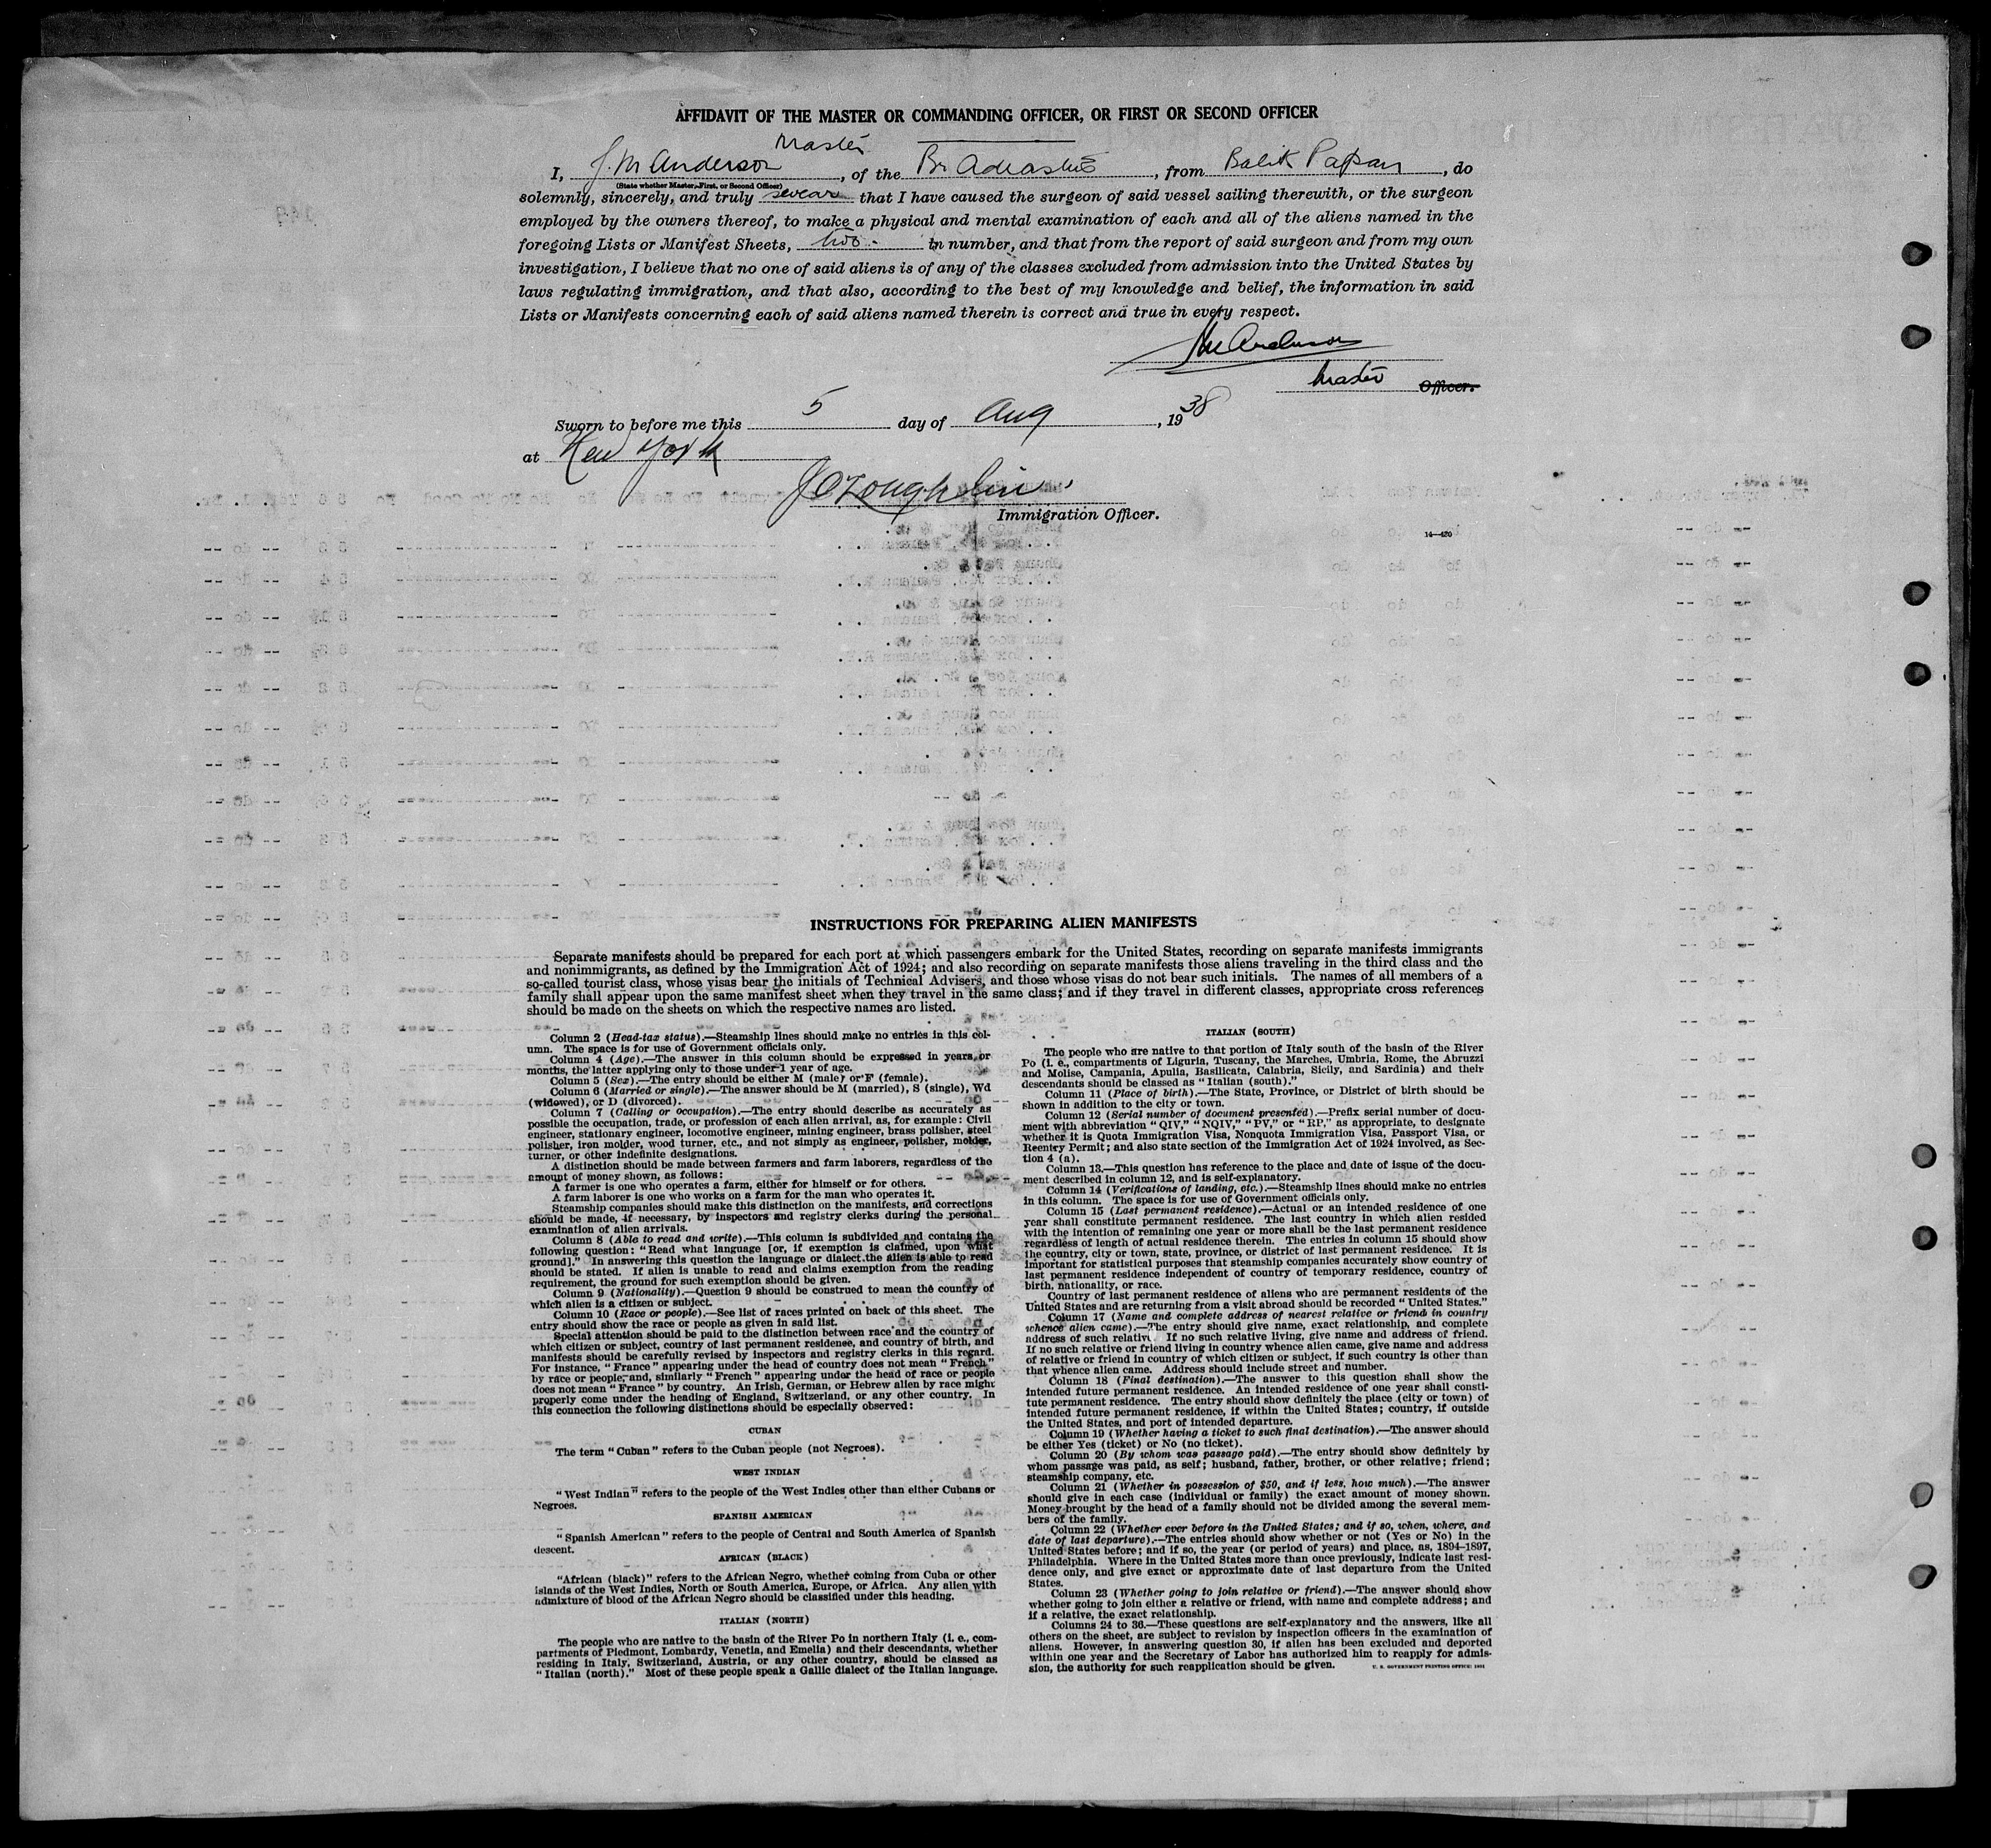 AFFIDAVIT OF THE MASTER OR COMMANDING OFFICER, OR FIRST OR SECOND OFFICER
I, J. M Anderson Master, of the Br, from Balik Papan, do
(State whether Master, First, or Second Officer)
solemnly, sincerely, and truly swear that I have caused the surgeon of said vessel sailing therewith, or the surgeon
employed by the owners thereof, to make a physical and mental examination of each and all of the aliens named in the
foregoing Lists or Manifest Sheets, two in number, and that from the report of said surgeon and from my own
investigation, I believe that no one of said aliens is of any of the classes excluded from admission into the United States by
laws regulating immigration, and that also, according to the best of my knowledge and belief, the information in said
Lists or Manifests concerning each of said aliens named therein is correct and true in every respect.
JM Anderson
Master Officer.
Sworn to before me this 5 day of Aug, 1938
at New York
Immigration Officer.
14—430
INSTRUCTIONS FOR PREPARING ALIEN MANIFESTS
Separate manifests should be prepared for each port at which passengers embark for the United States, recording on separate manifests immigrants
and nonimmigrants, as defined by the Immigration Act of 1924; and also recording on separate manifests those aliens traveling in the third class and the
so-called tourist class, whose visas bear the initials of Technical Advisers, and those whose visas do not bear such initials. The names of all members of a
family shall appear upon the same manifest sheet when they travel in the same class; and if they travel in different classes, appropriate cross references
should be made on the sheets on which the respective names are listed.
Column 2 (Head-tax status).—Steamship lines should make no entries in this col-
umn. The space is for use of Government officials only.
Column 4 (Age).—The answer in this column should be expressed in years or
months, the latter applying only to those under 1 year of age.
Column 5 (Sex).—The entry should be either M (male) or F (female).
Column 6 (Married or single).—The answer should be M (married), S (single), Wd
(widowed), or D (divorced).
Column 7 (Calling or occupation).—The entry should describe as accurately as
possible the occupation, trade, or profession of each alien arrival, as, for example: Civil
engineer, stationary engineer, locomotive engineer, mining engineer, brass polisher, steel
polisher, iron molder, wood turner, etc., and not simply as engineer, polisher, molder,
turner, or other indefinite designations.
A distinction should be made between farmers and farm laborers, regardless of the
amount of money shown, as follows:
A farmer is one who operates a farm, either for himself or for others.
A farm laborer is one who works on a farm for the man who operates it.
Steamship companies should make this distinction on the manifests, and corrections
should be made, if necessary, by inspectors and registry clerks during the personal
examination of alien arrivals.
Column 8 (Able to read and write).—This column is subdivided and contains the
following question: "Read what language [or, if exemption is claimed, upon what
ground]." In answering this question the language or dialect the alien is able to read
should be stated. If alien is unable to read and claims exemption from the reading
requirement, the ground for such exemption should be given.
Column 9 (Nationality).—Question 9 should be construed to mean the country of
which alien is a citizen or subject.
Column 10 (Race or people).—See list of races printed on back of this sheet. The
entry should show the race or people as given in said list.
Special attention should be paid to the distinction between race and the country of
which citizen or subject, country of last permanent residence, and country of birth, and
manifests should be carefully revised by inspectors and registry clerks in this regard.
For instance, "France" appearing under the head of country does not mean "French"
by race or people, and, similarly "French" appearing under the head of race or people
does not mean "France" by country. An Irish, German, or Hebrew alien by race might
properly come under the heading of England, Switzerland, or any other country. In
this connection the following distinctions should be especially observed:
CUBAN
The term "Cuban" refers to the Cuban people (not Negroes).
WEST INDIAN
"West Indian" refers to the people of the West Indies other than either Cubans or
Negroes.
SPANISH AMERICAN
"Spanish American" refers to the people of Central and South America of Spanish
descent.
AFRICAN (BLACK)
"African (black)" refers to the African Negro, whether coming from Cuba or other
islands of the West Indies, North or South America, Europe, or Africa. Any alien with
admixture of blood of the African Negro should be classified under this heading.
ITALIAN (NORTH)
The people who are native to the basin of the River Po in northern Italy (i. e., com-
partments of Piedmont, Lombardy, Venetia, and Emelia) and their descendants, whether
residing in Italy, Switzerland, Austria, or any other country, should be classed as
"Italian (north)." Most of these people speak a Gallic dialect of the Italian language.
ITALIAN (SOUTH)
The people who are native to that portion of Italy south of the basin of the River
Po (i. e., compartments of Liguria, Tuscany, the Marches, Umbria, Rome, the Abruzzi
and Molise, Campania, Apulia, Basilicata, Calabria, Sicily, and Sardinia) and their
descendants should be classed as "Italian (south)."
Column 11 (Place of birth).—The State, Province, or District of birth should be
shown in addition to the city or town.
Column 12 (Serial number of document presented).—Prefix serial number of docu-
ment with abbreviation "QIV," "NQIV," "PV," or "RP," as appropriate, to designate
whether it is Quota Immigration Visa, Nonquota Immigration Visa, Passport Visa, or
Reentry Permit; and also state section of the Immigration Act of 1924 involved, as Sec-
tion 4 (a).
Column 13.—This question has reference to the place and date of issue of the docu-
ment described in column 12, and is self-explanatory.
Column 14 (Verifications of landing, etc.).—Steamship lines should make no entries
in this column. The space is for use of Government officials only.
Column 15 (Last permanent residence).—Actual or an intended residence of one
year shall constitute permanent residence. The last country in which alien resided
with the intention of remaining one year or more shall be the last permanent residence
regardless of length of actual residence therein. The entries in column 15 should show
the country, city or town, state, province, or district of last permanent residence. It is
important for statistical purposes that steamship companies accurately show country of
last permanent residence independent of country of temporary residence, country of
birth, nationality, or race.
Country of last permanent residence of aliens who are permanent residents of the
United States and are returning from a visit abroad should be recorded "United States."
Column 17 (Name and complete address of nearest relative or friend in country
whence alien came).—The entry should give name, exact relationship, and complete
address of such relativ. If no such relative living, give name and address of friend.
If no such relative or friend living in country whence alien came, give name and address
of relative or friend in country of which citizen or subject, if such country is other than
that whence alien came. Address should include street and number.
Column 18 (Final destination).—The answer to this question shall show the
intended future permanent residence. An intended residence of one year shall consti-
tute permanent residence. The entry should show definitely the place (city or town) of
intended future permanent residence, if within the United States; country, if outside
the United States, and port of intended departure.
Column 19 (Whether having a ticket to such final destination).—The answer should
be either Yes (ticket) or No (no ticket).
Column 20 (By whom was passage paid).—The entry should show definitely by
whom passage was paid, as self; husband, father, brother, or other relative; friend;
steamship company, etc.
Column 21 (Whether in possession of $50, and if less, how much).—The answer
should give in each case (individual or family) the exact amount of money shown.
Money brought by the head of a family should not be divided among the several mem-
bers of the family.
Column 22 (Whether ever before in the United States; and if so, when, where, and
date of last departure).—The entries should show whether or not (Yes or No) in the
United States before; and if so, the year (or period of years) and place, as, 1894–1897,
Philadelphia. Where in the United States more than once previously, indicate last resi-
dence only, and give exact or approximate date of last departure from the United
States.
Column 23 (Whether going to join relative or friend).—The answer should show
whether going to join either a relative or friend, with name and complete address; and
if a relative, the exact relationship.
Columns 24 to 36.—These questions are self-explanatory and the answers, like all
others on the sheet, are subject to revision by inspection officers in the examination of
aliens. However, in answering question 30, if alien has been excluded and deported
within one year and the Secretary of Labor has authorized him to reapply for admis-
sion, the authority for such reapplication should be given.
U. S. GOVERNMENT PRINTING OFFICE: 1931